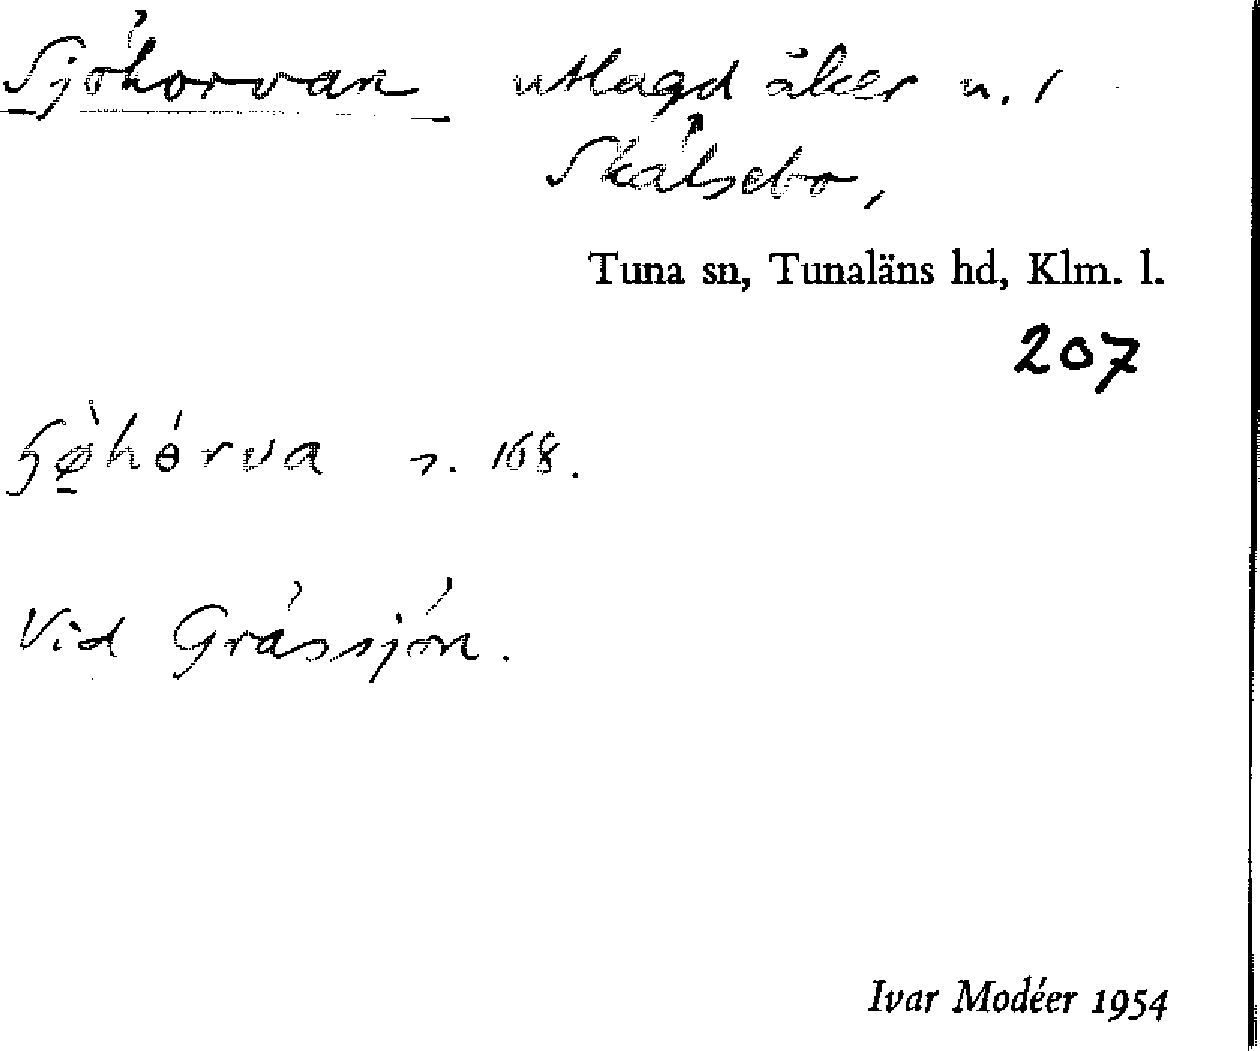 Sjöhorvan utlagd åker n. 1
Skälsebo,
Tuna sn, Tunaläns hd, Klm. l.
207
s. 168.
Vid Grässjön.
Ivar Modéer 1954